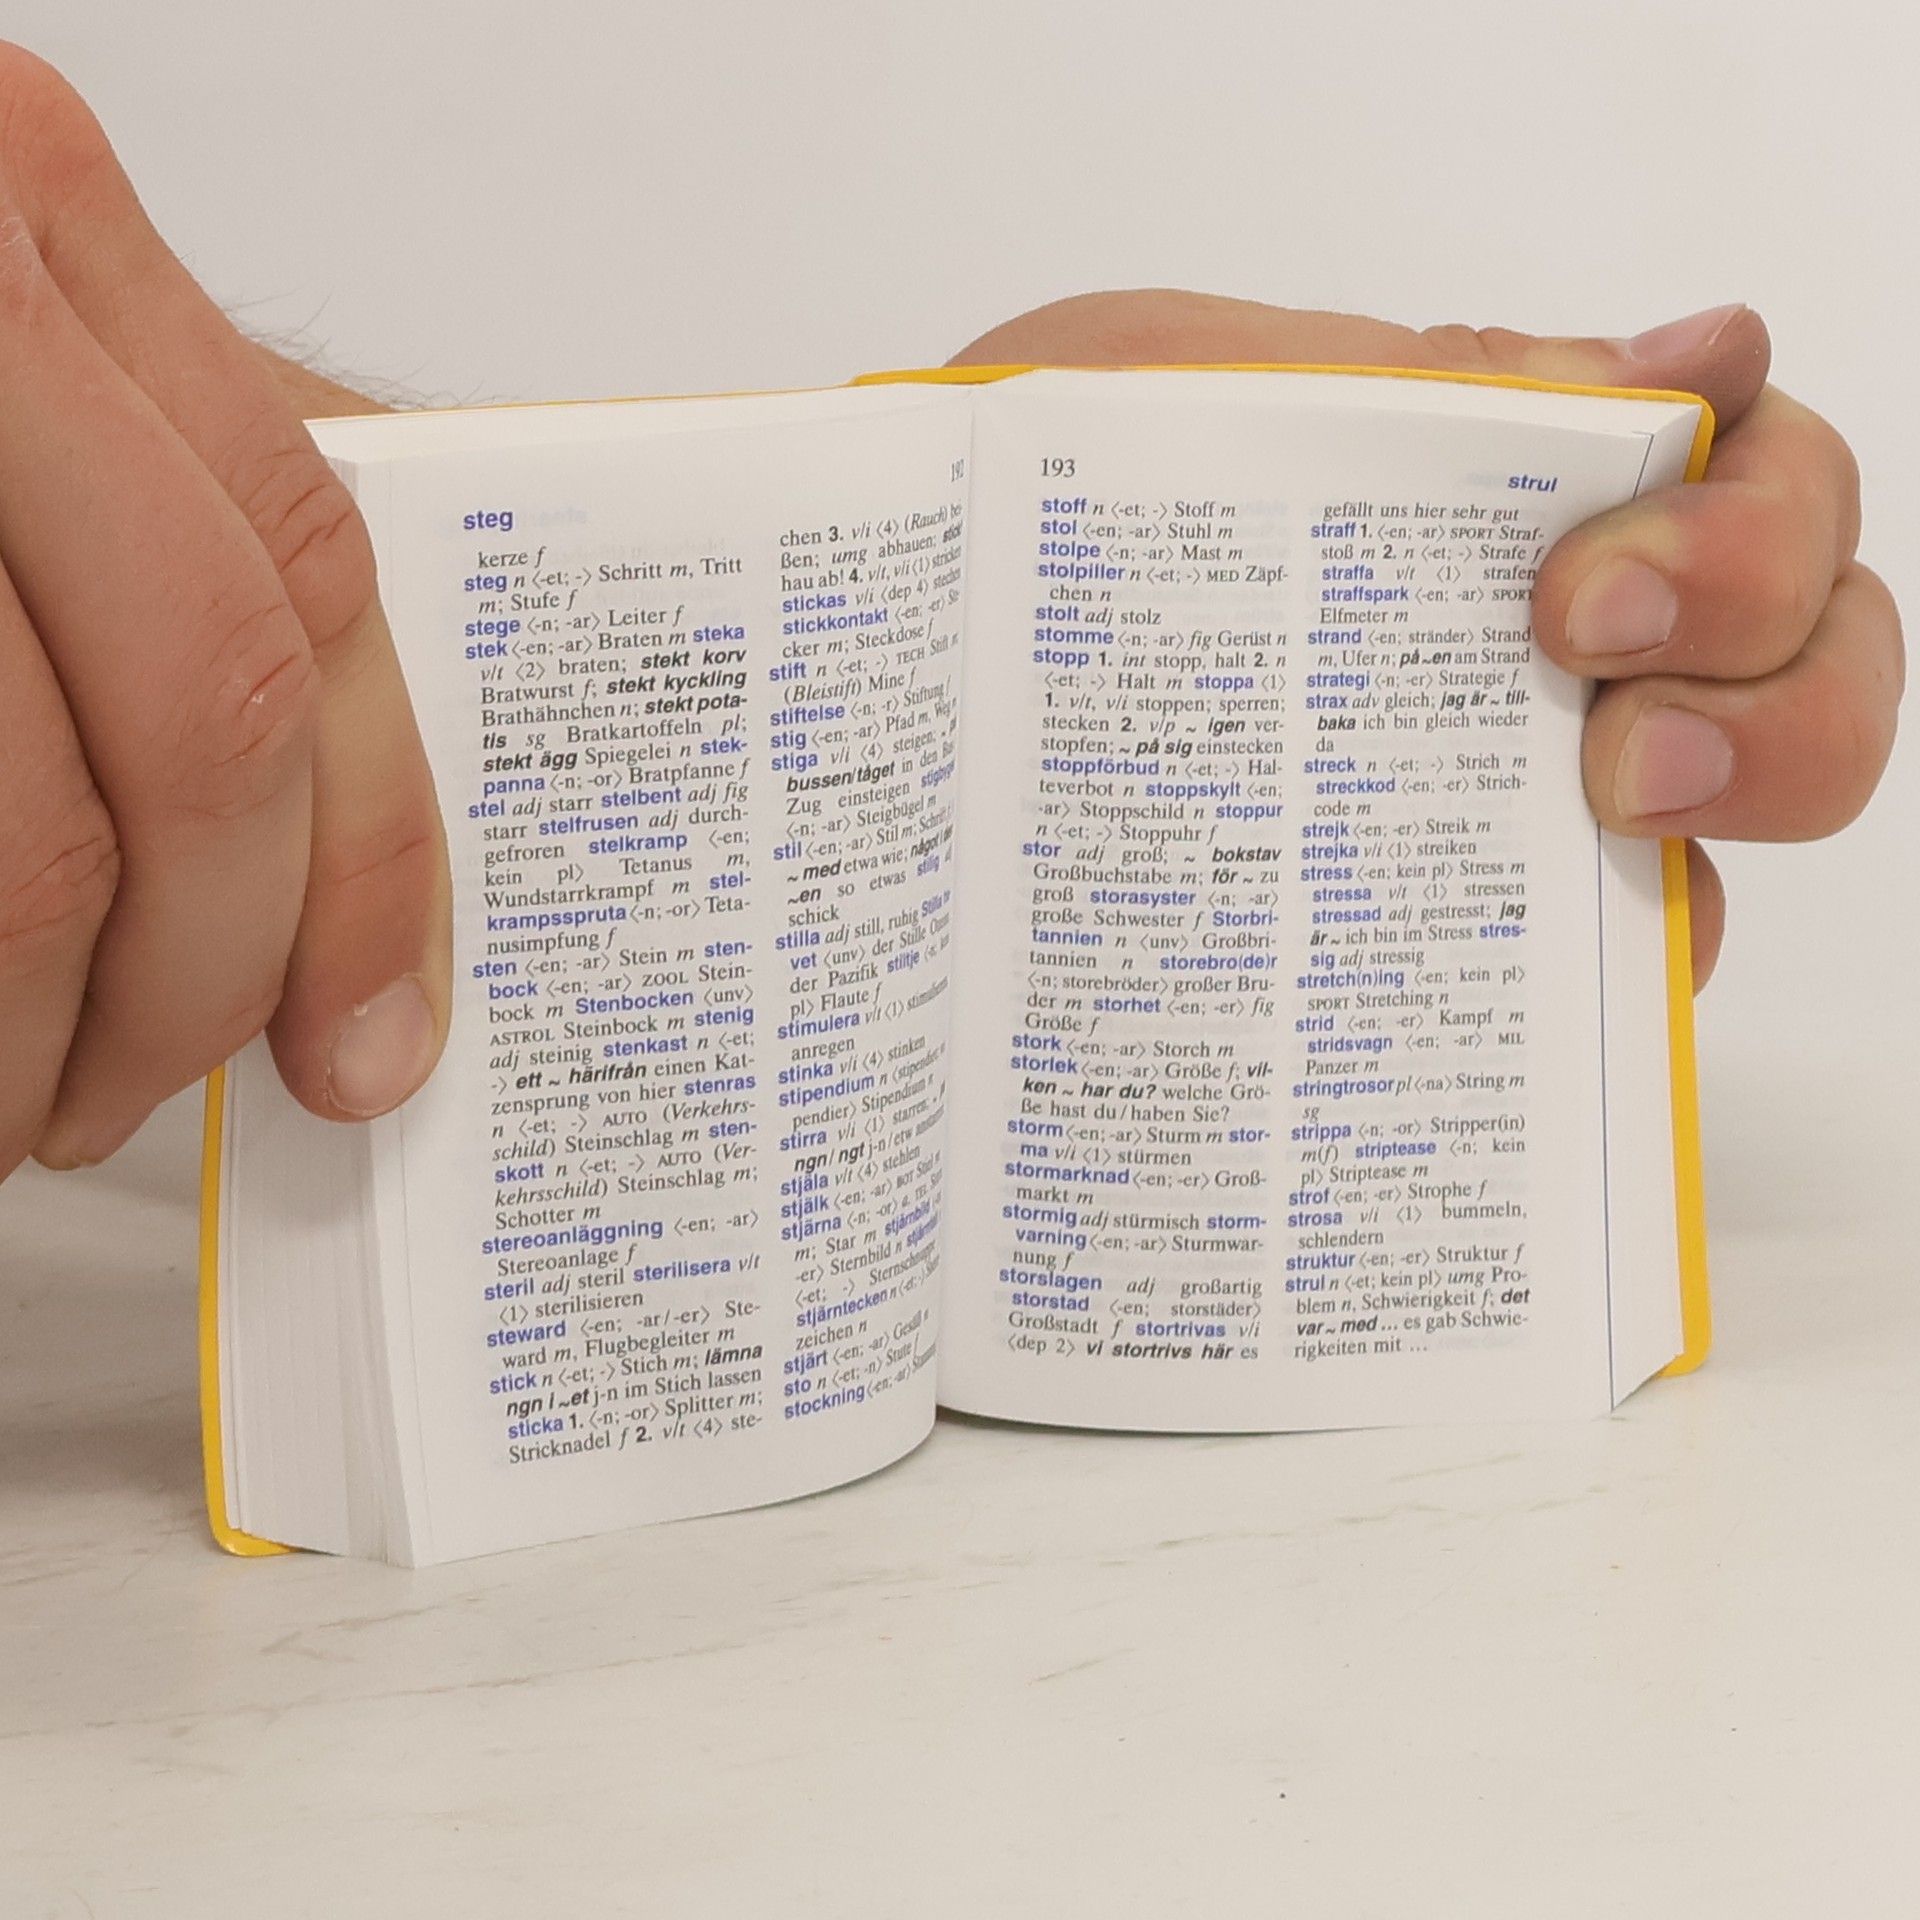 steg
192
kerze f
steg n ⟨-et; -⟩ Schritt m, Tritt
m; Stufe f
stege ⟨-n; -ar⟩ Leiter f
stek ⟨-en; -ar⟩ Braten m steka
v/t ⟨2⟩ braten; stekt korv
Bratwurst f; stekt kyckling
Brathähnchen n; stekt pota-
tis sg Bratkartoffeln pl;
stekt ägg Spiegelei n stek-
panna ⟨-n; -or⟩ Bratpfanne f
stel adj starr stelbent adj fig
starr stelfrusen adj durch-
gefroren stelkramp ⟨-en;
kein pl⟩ Tetanus m,
Wundstarrkrampf m stel-
krampsspruta ⟨-n; -or⟩ Teta-
nusimpfung f
sten ⟨-en; -ar⟩ Stein m sten-
bock ⟨-en; -ar⟩ ZOOL Stein-
bock m Stenbocken ⟨unv⟩
ASTROL Steinbock m stenig
adj steinig stenkast n ⟨-et;
-⟩ ett ~ härifrån einen Kat-
zensprung von hier stenras
n ⟨-et; -⟩ AUTO (Verkehrs-
schild) Steinschlag m sten-
skott n ⟨-et; -⟩ AUTO (Ver-
kehrsschild) Steinschlag m;
Schotter m
stereoanläggning ⟨-en; -ar⟩
Stereoanlage f
steril adj steril sterilisera v/t
⟨1⟩ sterilisieren
steward ⟨-en; -ar/-er⟩ Ste-
ward m, Flugbegleiter m
stick n ⟨-et; -⟩ Stich m; lämna
ngn i ~et j-n im Stich lassen
sticka 1. ⟨-n; -or⟩ Splitter m;
Stricknadel f 2. v/t ⟨4⟩ ste-
chen 3. v/i ⟨4⟩ (Rauch) bei-
ßen; umg abhauen; stick
hau ab! 4. v/t, v/i ⟨1⟩ stricken
stickas v/i ⟨dep 4⟩ stechen
stickkontakt ⟨-en; -er⟩ Ste-
cker m; Steckdose f
stift n ⟨-et; -⟩ TECH Stift m
(Bleistift) Mine f
stiftelse ⟨-n; -r⟩ Stiftung f
stig ⟨-en; -ar⟩ Pfad m, Weg
stiga v/i ⟨4⟩ steigen; ~ på
bussen/tåget in den Bus
Zug einsteigen stigbygel
⟨-n; -ar⟩ Steigbügel m
stil ⟨-en; -ar⟩ Stil m; Schrift f
~ med etwa wie; något i den
~en so etwas stilig adj
schick
stilla adj still, ruhig Stilla ha-
vet ⟨unv⟩ der Stille Ozean
der Pazifik stiltje
pl⟩ Flaute f
stimulera v/t ⟨1⟩ stimulieren
anregen
stinka v/i ⟨4⟩ stinken
stipendium n ⟨stipendiet
pendier⟩ Stipendium n
stirra v/i ⟨1⟩ starren; ~ på
ngn/ngt j-n/etw anstarren
stjäla v/t ⟨4⟩ stehlen
stjälk ⟨-en; -ar⟩ BOT Stiel m
stjärna ⟨-n; -or⟩ a. TEL Stern
m; Star m stjärnbild
-er⟩ Sternbild n stjärnfall
⟨-et; -⟩ Sternschnuppe
stjärntecken n ⟨-et; -⟩
zeichen n
stjärt ⟨-en; -ar⟩ Gesäß n
sto n ⟨-et; -n⟩ Stute f
stockning ⟨-en; -ar⟩
193
strul
stoff n ⟨-et; -⟩ Stoff m
stol ⟨-en; -ar⟩ Stuhl m
stolpe ⟨-n; -ar⟩ Mast m
stolpiller n ⟨-et; -⟩ MED Zäpf-
chen n
stolt adj stolz
stomme ⟨-n; -ar⟩ fig Gerüst n
stopp 1. int stopp, halt 2. n
⟨-et; -⟩ Halt m stoppa ⟨1⟩
1. v/t, v/i stoppen; sperren;
stecken 2. v/p ~ igen ver-
stopfen; ~ på sig einstecken
stoppförbud n ⟨-et; -⟩ Hal-
teverbot n stoppskylt ⟨-en;
-ar⟩ Stoppschild n stoppur
n ⟨-et; -⟩ Stoppuhr f
stor adj groß; ~ bokstav
Großbuchstabe m; för ~ zu
groß storasyster ⟨-n; -ar⟩
große Schwester f Storbri-
tannien n ⟨unv⟩ Großbri-
tannien n storebro(de)r
⟨-n; storebröder⟩ großer Bru-
der m storhet ⟨-en; -er⟩ fig
Größe f
stork ⟨-en; -ar⟩ Storch m
storlek ⟨-en; -ar⟩ Größe f; vil-
ken ~ har du? welche Grö-
ße hast du/haben Sie?
storm ⟨-en; -ar⟩ Sturm m stor-
ma v/i ⟨1⟩ stürmen
stormarknad ⟨-en; -er⟩ Groß-
markt m
stormig adj stürmisch storm-
varning ⟨-en; -ar⟩ Sturmwar-
nung f
storslagen adj großartig
storstad ⟨-en; storstäder⟩
Großstadt f stortrivas v/i
⟨dep 2⟩ vi stortrivs här es
gefällt uns hier sehr gut
straff 1. ⟨-en; -ar⟩ SPORT Straf-
stoß m 2. n ⟨-et; -⟩ Strafe f
straffa v/t ⟨1⟩ strafen
straffspark ⟨-en; -ar⟩ SPORT
Elfmeter m
strand ⟨-en; stränder⟩ Strand
m, Ufer n; på ~en am Strand
strategi ⟨-n; -er⟩ Strategie f
strax adv gleich; jag är ~ till-
baka ich bin gleich wieder
da
streck n ⟨-et; -⟩ Strich m
streckkod ⟨-en; -er⟩ Strich-
code m
strejk ⟨-en; -er⟩ Streik m
strejka v/i ⟨1⟩ streiken
stress ⟨-en; kein pl⟩ Stress m
stressa v/t ⟨1⟩ stressen
stressad adj gestresst; jag
är ~ ich bin im Stress stres-
sig adj stressig
stretch(n)ing ⟨-en; kein pl⟩
SPORT Stretching n
strid ⟨-en; -er⟩ Kampf m
stridsvagn ⟨-en; -ar⟩ MIL
Panzer m
stringtrosor pl ⟨-na⟩ String m
sg
strippa ⟨-n; -or⟩ Stripper(in)
m(f) striptease ⟨-n; kein
pl⟩ Striptease m
strof ⟨-en; -er⟩ Strophe f
strosa v/i ⟨1⟩ bummeln,
schlendern
struktur ⟨-en; -er⟩ Struktur f
strul n ⟨-et; kein pl⟩ umg Pro-
blem n, Schwierigkeit f; det
var ~ med ... es gab Schwie-
rigkeiten mit ...